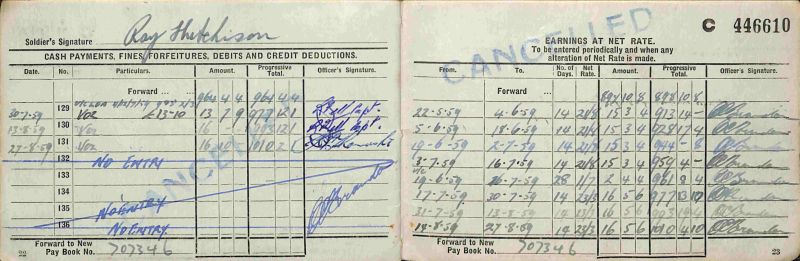 Soldier's Signature Ray Hutchison
CASH PAYMENTS, FINES, FORFEITURES, DEBITS AND CREDIT DEDUCTIONS.
Date. No. Particulars. Amount. Progressive Total. Officer's Signature.
Forward ... 964 4 4 964 4 4
30-7-59 129 Voz £13-10
13-8-59 130 Voz 16
27-8-59 131 Voz 16
132 NO ENTRY
133
134
135 NO ENTRY
136 NO ENTRY
Forward to New
Pay Book No. 707346
22
CANCELLED
C 446610
EARNINGS AT NET RATE.
To be entered periodically and when any
alteration of Net Rate is made.
From. To. No. of Days. Net Rate. Amount. Progressive Total. Officer's Signature.
Forward ... 898 10 8 898 10 8
22-5-59 4-6-59 14 21/8 15 3 4 913 14 -
5-6-59 18-6-59 14 21/8 15 3 4
19-6-59 2-7-59 14 21/8 15 3 4 944 - 8
3-7-59 16-7-59 14 21/8 15 3 4 959 4 -
19-6-59 16-7-59 28 1/7 2 4 4 961 8 4
17-7-59 30-7-59 14 23/3 16 5 6 977 13 10
31-7-59 13-8-59 14 23/3 16 5 6 993 19 4
14-8-59 27-8-59 14 23/3 16 5 6 1010 4 10
Forward to New
Pay Book No. 707346
23
CANCELLED